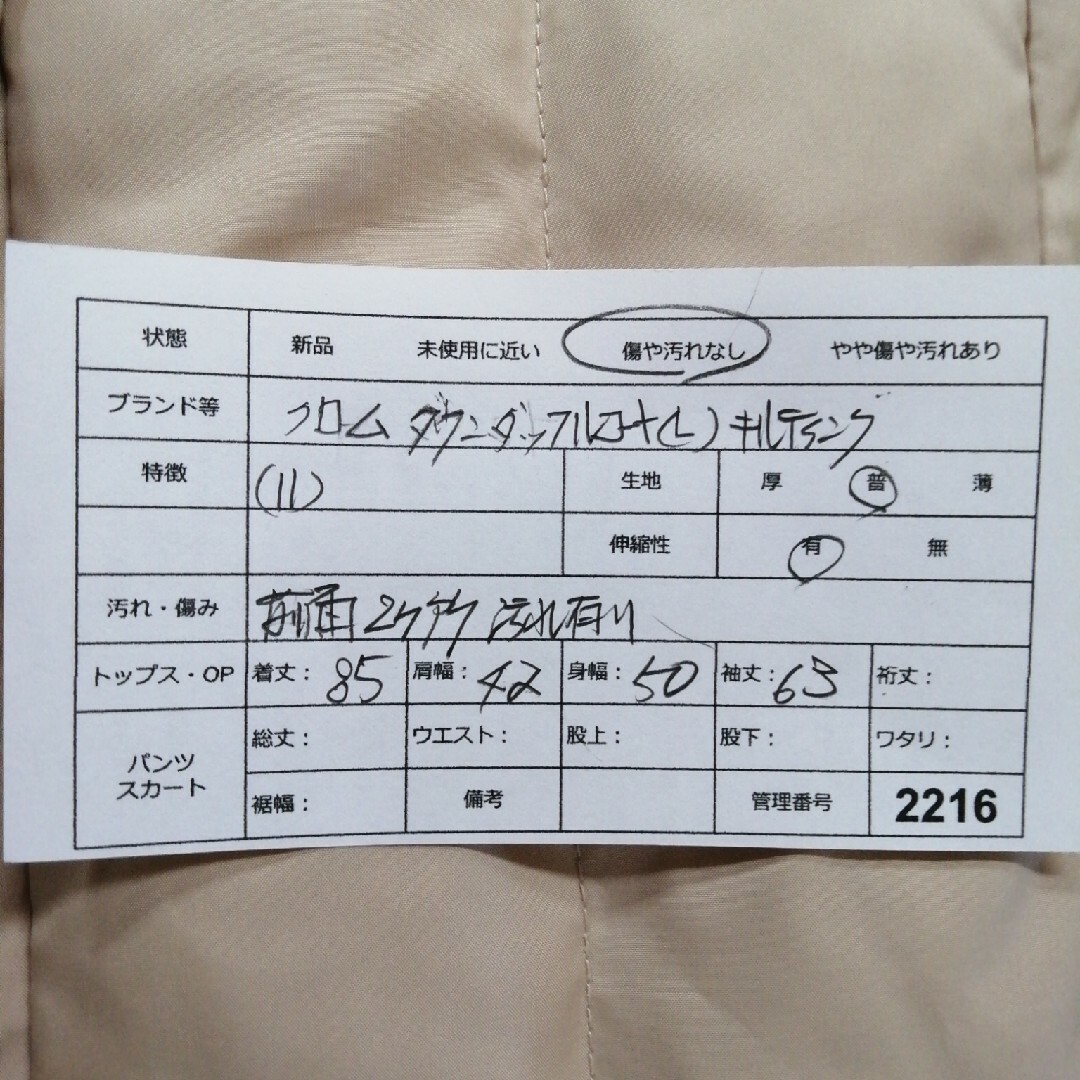 状態 新品 未使用に近い 傷や汚れなし やや傷や汚れあり
ブランド等 フロム ダウンダッフルコート(L) キルティング
特徴 (11) 生地 厚 普 薄
伸縮性 有 無
汚れ・傷み 前面2ヶ所 汚れ有り
トップス・OP 着丈： 85 肩幅： 42 身幅： 50 袖丈： 63 裄丈：
パンツ スカート 総丈： ウエスト： 股上： 股下： ワタリ：
裾幅： 備考 管理番号 2216